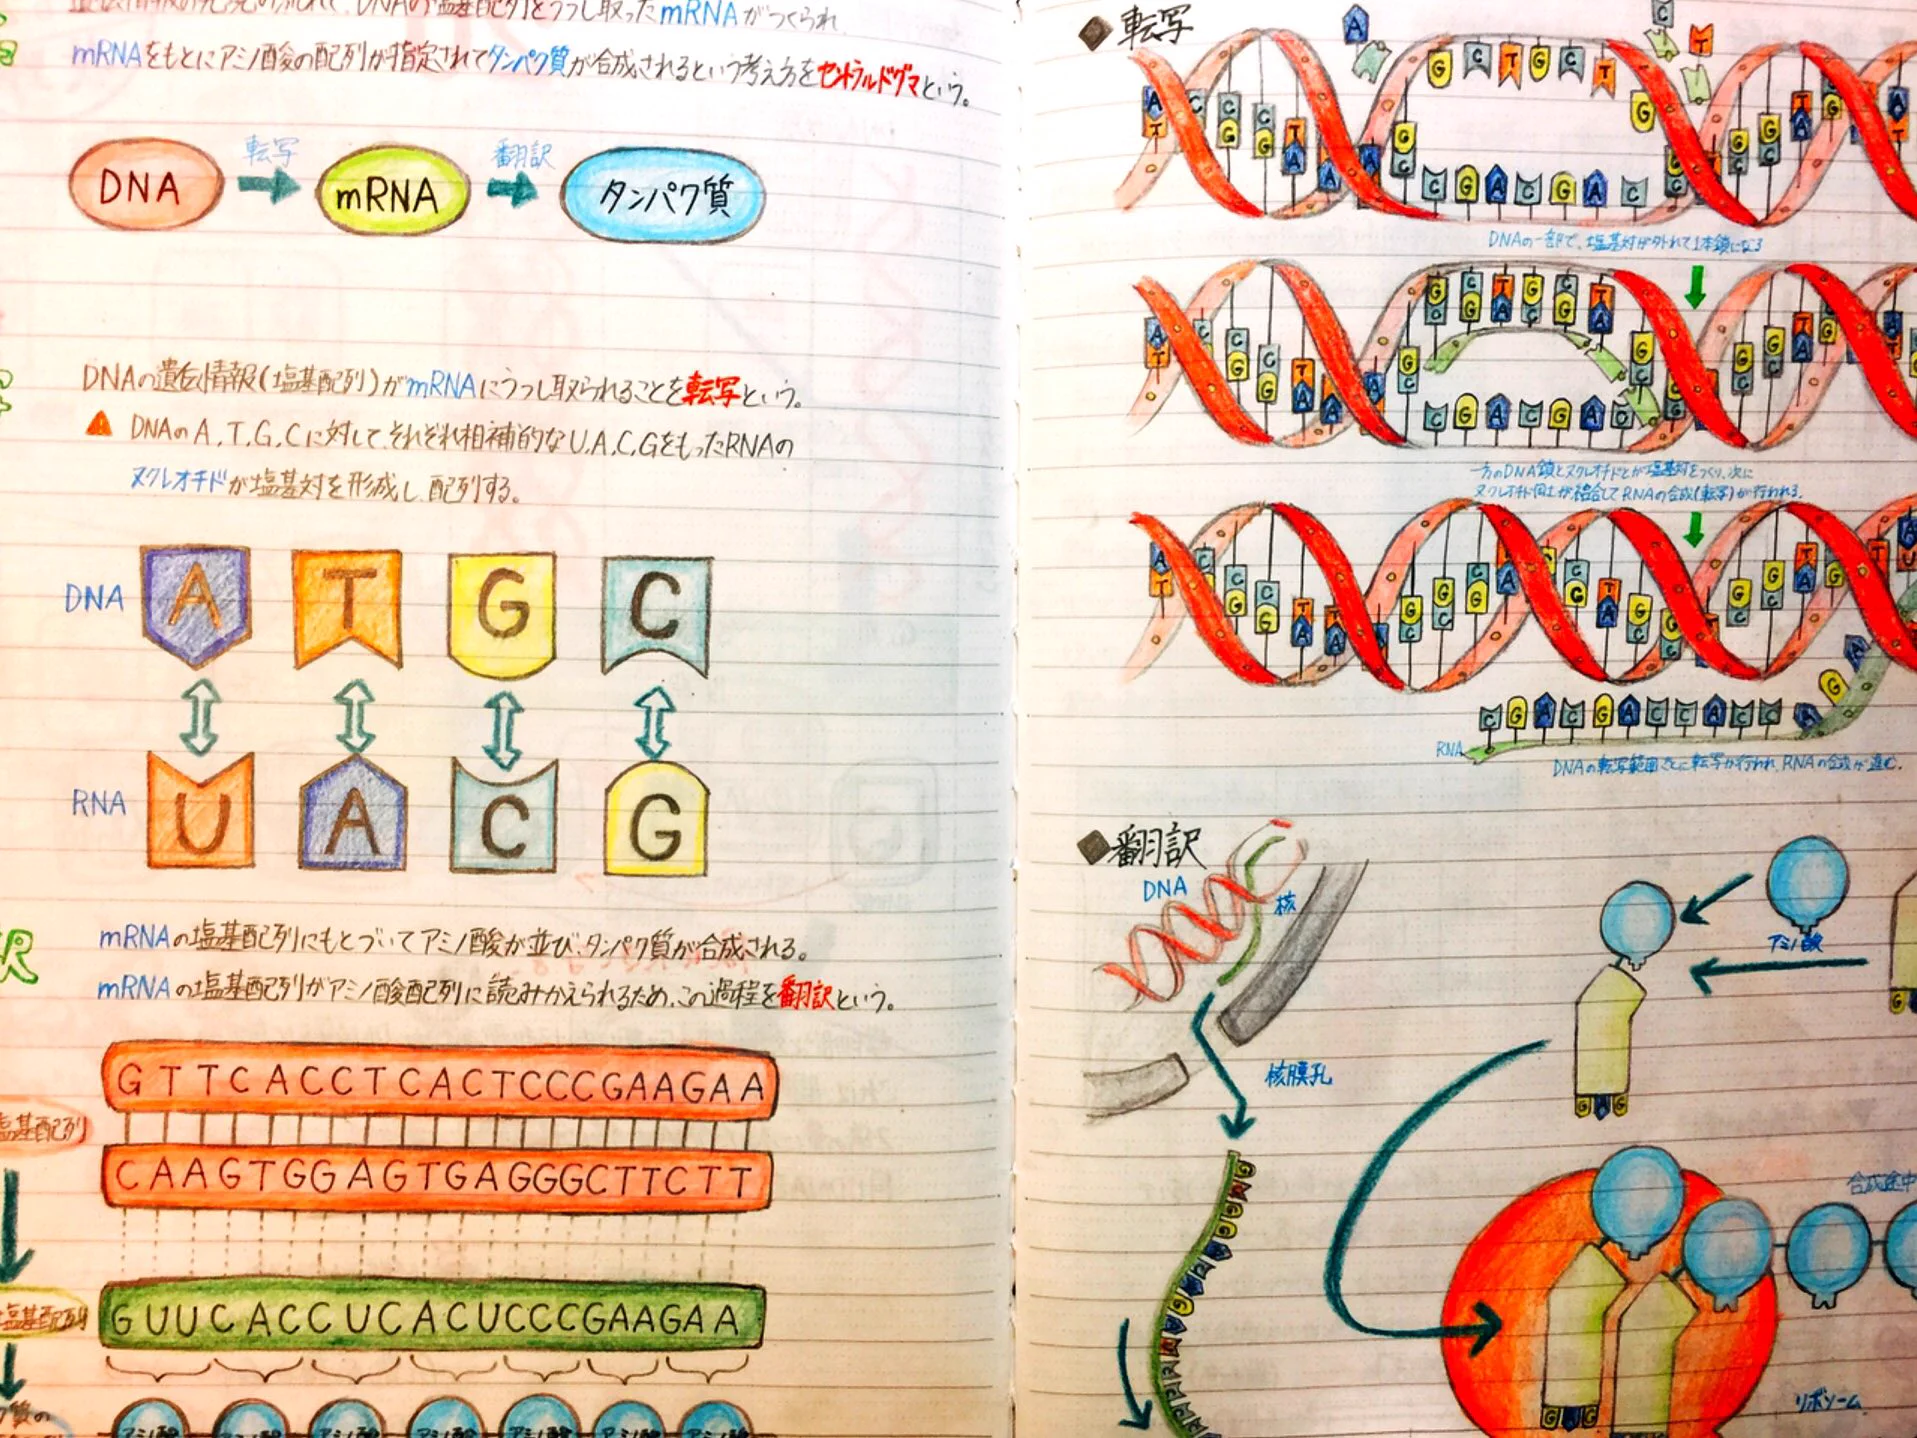 DNAの塩基配列をうつし取ったmRNAがつくられ
mRNAをもとにアミノ酸の配列が指定されてタンパク質が合成されるという考え方をセントラルドグマという。
DNA 転写 mRNA 翻訳 タンパク質
DNAの遺伝情報(塩基配列)がmRNAにうつし取られることを転写という。
DNAのA,T,G,Cに対して、それぞれ相補的なU,A,C,GをもったRNAの
ヌクレオチドが塩基対を形成し、配列する。
DNA A T G C
RNA U A C G
訳
mRNAの塩基配列にもとづいてアミノ酸が並び、タンパク質が合成される。
mRNAの塩基配列がアミノ酸配列に読みかえられるため、この過程を翻訳という。
GTTCACCTCACTCCCGAAGAA
塩基配列
CAAGTGGAGTGAGGGCTTCTT
塩基配列
GUUCACCUCACUCCCGAAGAA
質の
アミノ酸 アミノ酸 アミノ酸 アミノ酸 アミノ酸 アミノ酸 アミノ酸
◆転写
A C T
G C T G C T G
C G A C G A C
DNAの一部で、塩基対が外れて1本鎖になる
G C T G C T G
C G A C G A C
C G A C G A C
一方のDNA鎖とヌクレオチドとが塩基対をつくり、次に
ヌクレオチド同士が結合してRNAの合成(転写)が行われる。
C G A C G A C C A C C A G A
RNA
DNAの転写範囲ごとに転写が行われ、RNAの合成が進む。
◆翻訳
DNA
核
アミノ酸
核膜孔
G A G
合成途中
G A G
リボソーム